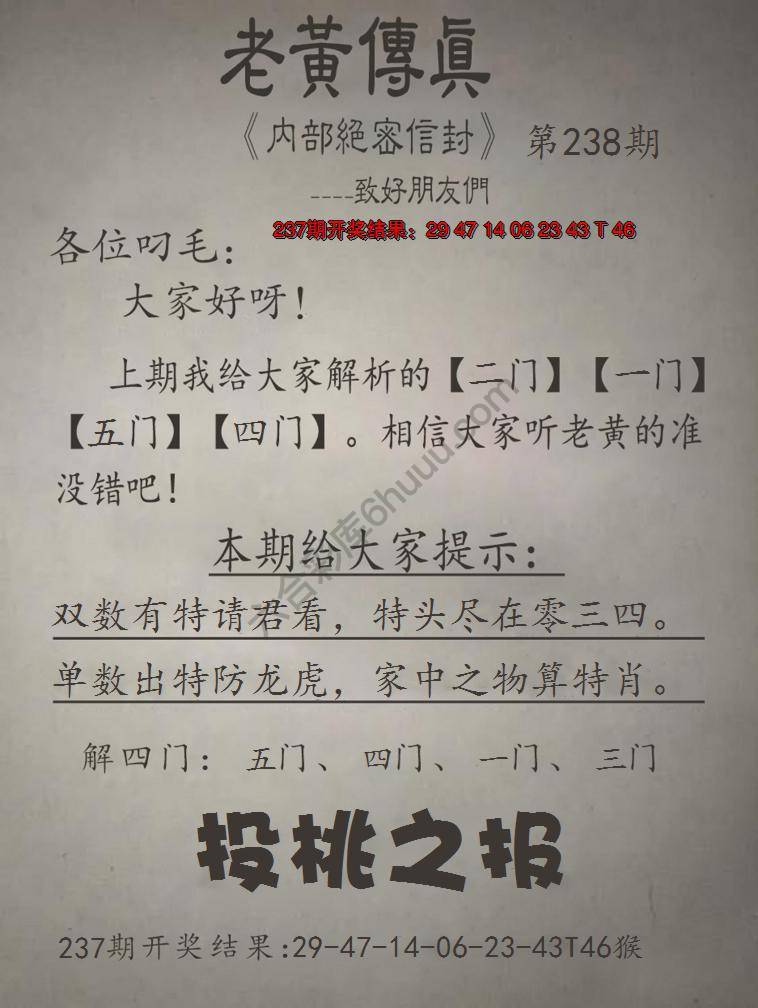 老黃傳真
《内部絕密信封》 第238期
----致好朋友們
237期开奖结果：29 47 14 06 23 43 T 46
各位叼毛：
大家好呀！
上期我给大家解析的【二门】【一门】
【五门】【四门】。相信大家听老黄的准
没错吧！
本期给大家提示：
双数有特请君看，特头尽在零三四。
单数出特防龙虎，家中之物算特肖。
解四门：五门、四门、一门、三门
投桃之报
237期开奖结果:29-47-14-06-23-43T46猴
六合彩库6huuu.com